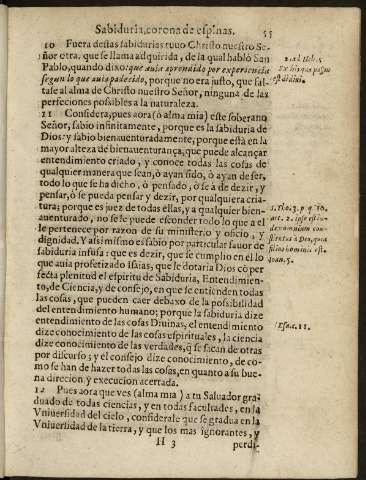 Sabiduria, corona de espinas. 55
10 Fuera destas sabidurias tuuo Christo nuestro Se-
ñor otra, que se llama adquirida, de la qual habló San
Pablo, quando dixo: que auia aprendido por experiencia
segun lo que auia padecido, porque no era justo, que fal-
tase al alma de Christo nuestro Señor, ninguna de las
perfeciones possibles a la naturaleza.
11 Considera, pues aora (ò alma mia) este soberano
Señor, sabio infinitamente, porque es la sabiduria de
Dios: y sabio bienauenturadamente, porque està en la
mayor alteza de bienauenturança, que puede alcançar
entendimiento criado, y conoce todas las cosas de
qualquier manera que sean, ò ayan sido, ò ayan de ser,
todo lo que se ha dicho, ò pensado, ò se à de dezir, y
pensar, ò se pueda pensar y dezir, por qualquiera cria-
tura; porque es juez de todas ellas, y a qualquier bien-
auenturado, no se le puede esconder todo lo que a el
le pertenece por razon de su ministerio y oficio, y
dignidad. Y assi mismo es sabio por particular fauor de
sabiduria infusa: que es dezir, que se cumplio en èl lo
que auia profetizado Isaias, que le dotaria Dios cō per
fecta plenitud el espiritu de Sabiduria, Entendimien-
to, de Ciencia, y de consejo, en que se entienden todas
las cosas, que pueden caer debaxo de la possibilidad
del entendimiento humano; porque la sabiduria dize
entendimiento de las cosas Diuinas, el entendimiento
dize conocimiento de las cosas espirituales, la ciencia
dize conocimiento de las verdades, q̄ se sacan de otras
por discurso; y el consejo dize conocimiento, de co-
mo se han de hazer todas las cosas, en quanto a su bue-
na direcion y execucion acertada.
12 Pues aora que ves (alma mia) a tu Saluador gra-
duado de todas ciencias, y en todas facultades, en la
Vniuersidad del cielo, considerale que se gradua en la
Vniuersidad de la tierra, y que los mas ignorantes, y
H 3 perdi-
ad Heb. 5.
ex his quæ passus
est didicit.
1. Tho. 3. p. q. 10.
art. 2.
Ioan. 5.
Esa. c. 11.